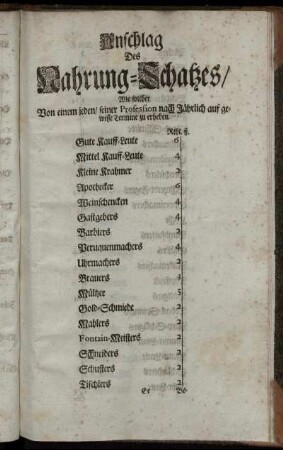 Anschlag
Des
Nahrung-Schatzes/
Wie solcher
Von einem jeden/ seiner Profession nach Jährlich auf ge-
wisse Termine zu erheben
Rthl. g.
Gute Kauff-Leute 6
Mittel Kauff-Leute 4
Kleine Krahmer 2
Apothecker 6
Weinschencken 4
Gastgebers 4
Barbiers 2
Peruquenmachers 4
Uhrmachers 2
Brauers
Mültzer 5
Gold-Schmiede 2
Mahlers 2
Fontain-Meisters 2
Schneiders 2
Schusters 2
Tischlers 2